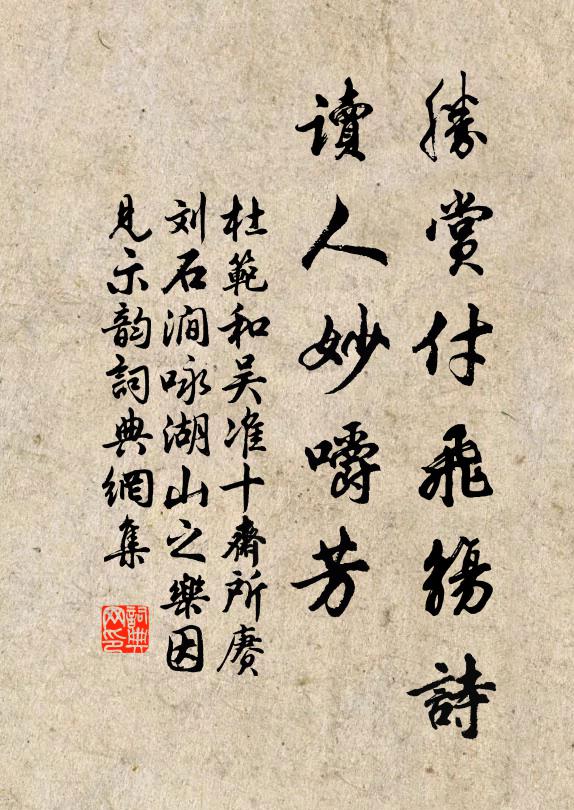 勝賞付飛觴詩
讀人妙嚼芳
杜範和吴准十齋所賡
刘石澗咏湖山之樂因
見示韵詞典網集
詞典
网印